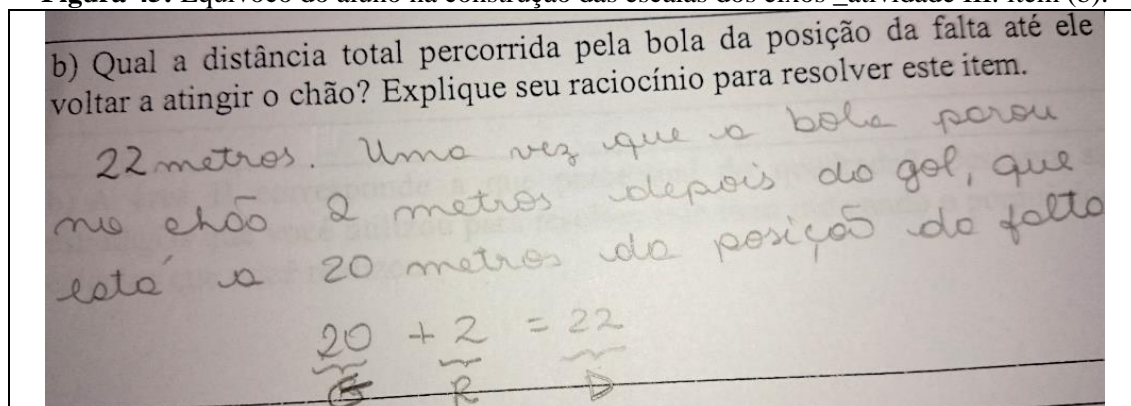 Figura 45: Equívoco do aluno na construção das escalas dos eixos _atividade III. Item (b).
b) Qual a distância total percorrida pela bola da posição da falta até ele
voltar a atingir o chão? Explique seu raciocínio para resolver este item.
22 metros. Uma vez que a bola parou
no chão 2 metros depois do gol, que
está a 20 metros da posição da falta
20 + 2 = 22
R D